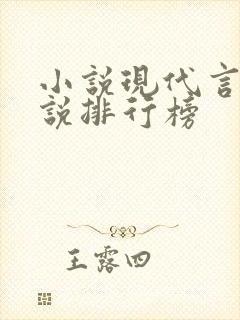 小說現代言
說排行榜
王露四